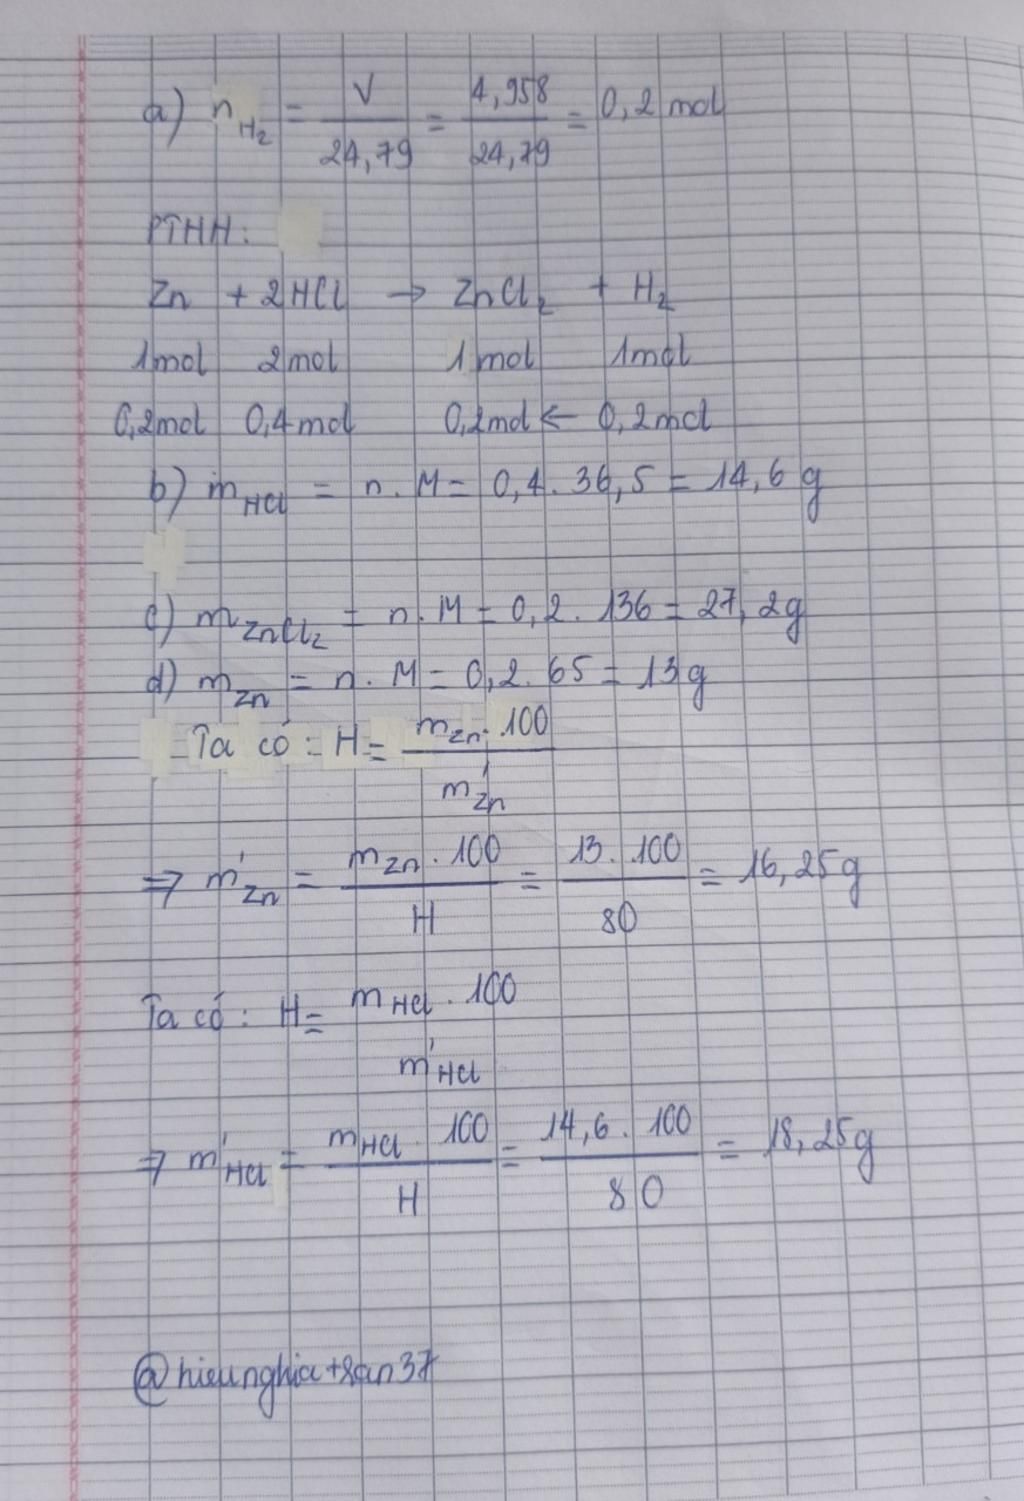 a) n_H₂ = V/24,79 = 4,958/24,79 = 0,2 mol
PTHH:
Zn + 2HCl → ZnCl₂ + H₂
1mol 2mol 1mol 1mol
0,2mol 0,4mol 0,2mol ← 0,2mol
b) m_HCl = n. M = 0,4. 36,5 = 14,6 g
c) m_ZnCl₂ = n. M = 0,2. 136 = 27,2g
d) m_Zn = n. M = 0,2. 65 = 13g
Ta có: H = m_Zn. 100/m'_Zn
⇒ m'_Zn = m_Zn. 100/H = 13. 100/80 = 16,25g
Ta có: H = m_HCl. 100/m'_HCl
⇒ m'_HCl = m_HCl. 100/H = 14,6. 100/80 = 18,25g